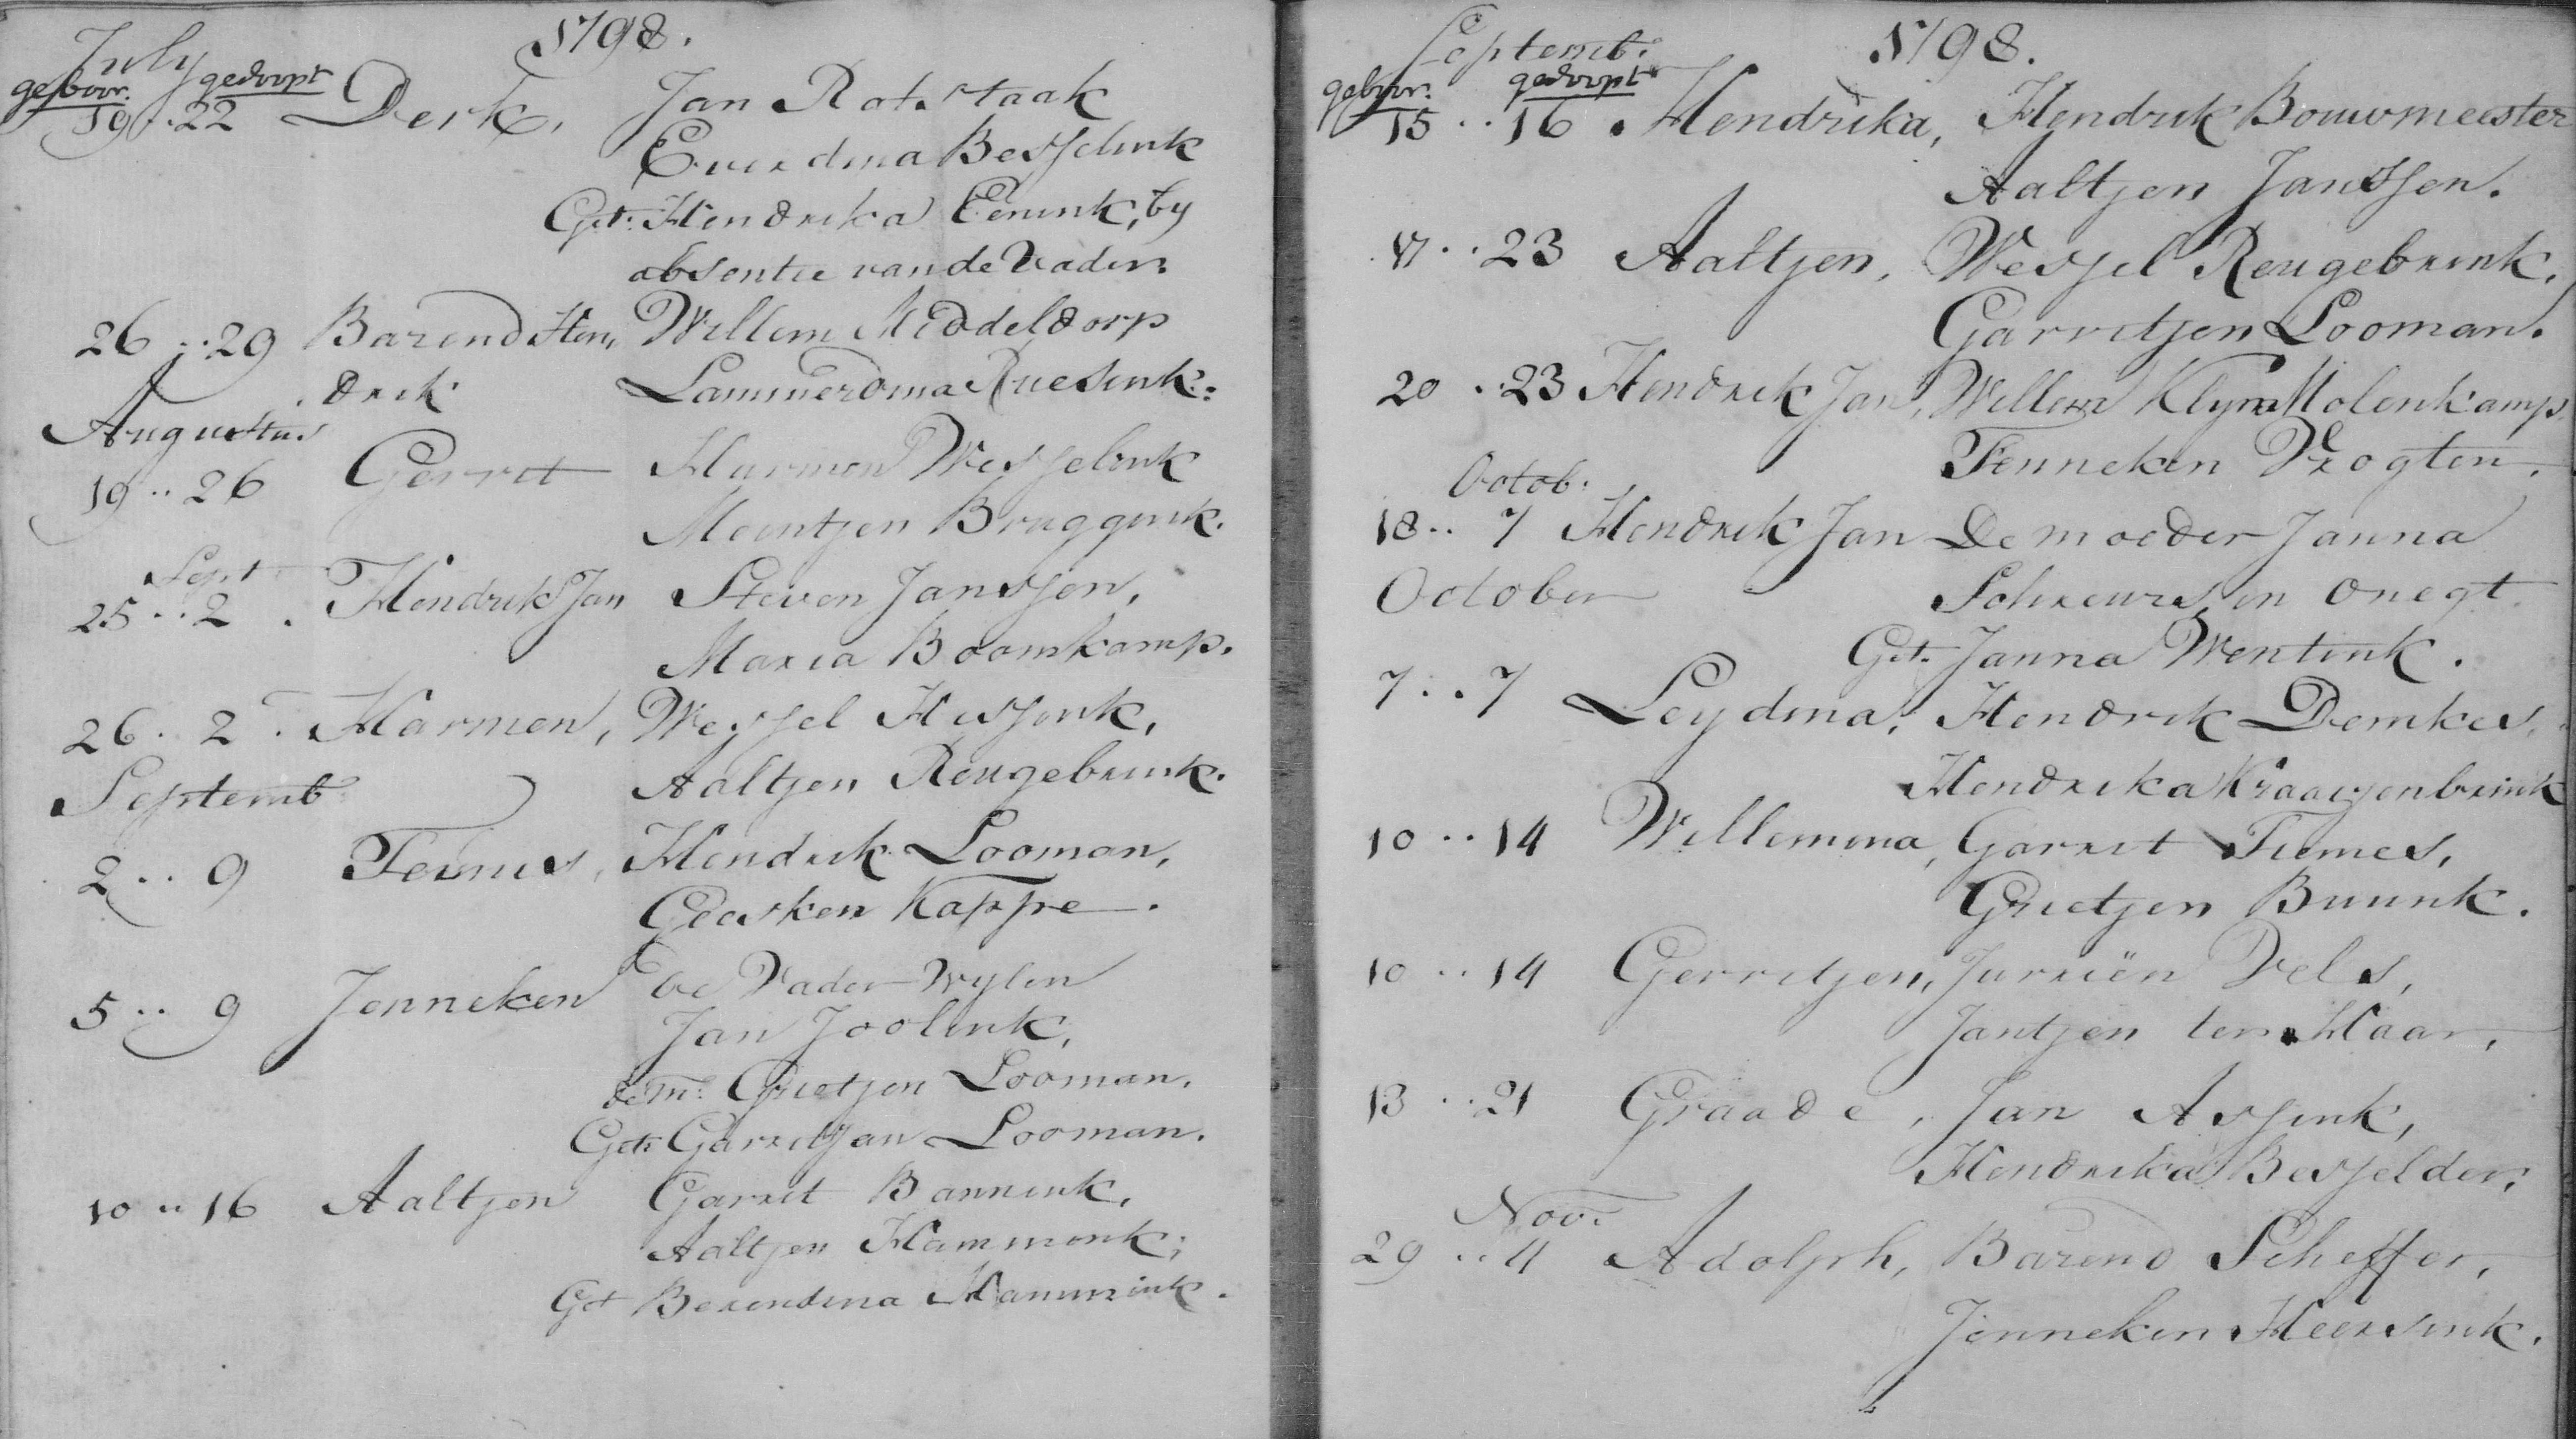 1798.
July
geboor. gedoopt
19..22 Derk, Jan Rotstaak
Everdina Besselink
Get: Hendrika Eenink, by
absentie van de Vader.
26..29 Barend Hen, Willem Middeldorp
drik Lammerdina Ruesink.
Augustus
19..26 Gerrit Harmen Wesselink
Meintjen Bruggink.
Sept
25..2. Hendrik Jan Steven Janssen,
Maria Boomkamp.
26..2. Harmen, Wessel Hissink,
Aaltjen Reugebrink.
Septemb
2..9 Teunis, Hendrik Looman,
Geesken Kappe.
5..9 Jenneken De Vader Wylen
Jan Joolink,
de m: Grietjen Looman.
Get: Garritjen Looman.
10..16 Aaltjen Garrit Bannink,
Aaltjen Hammink;
Get Berendina Hammink.
1798.
Septemb.
geboor. gedoopt
15..16. Hendrika, Hendrik Bouwmeester
Aaltjen Janssen.
17..23 Aaltjen, Wessel Reugebrink,
Garritjen Looman.
20..23 Hendrik Jan, Willem Klyn Molenkamp
Fenneken Vrogten.
Octob.
18..7 Hendrik Jan De moeder Janna
October Schreurs, in onegt.
Get. Janna Wentink.
7..7 Leydina, Hendrik Demkes,
Hendrika Kraaijenbrink
10..14 Willemina, Garrit Tiemes,
Grietjen Buunk.
10..14 Gerritjen, Jurriën Vels,
Jantjen ter Haar,
13..21 Graade, Jan Assink,
Hendrika Besselder,
Nov.
29..11 Adolph, Barend Scheffer,
Jenneken Heersink.